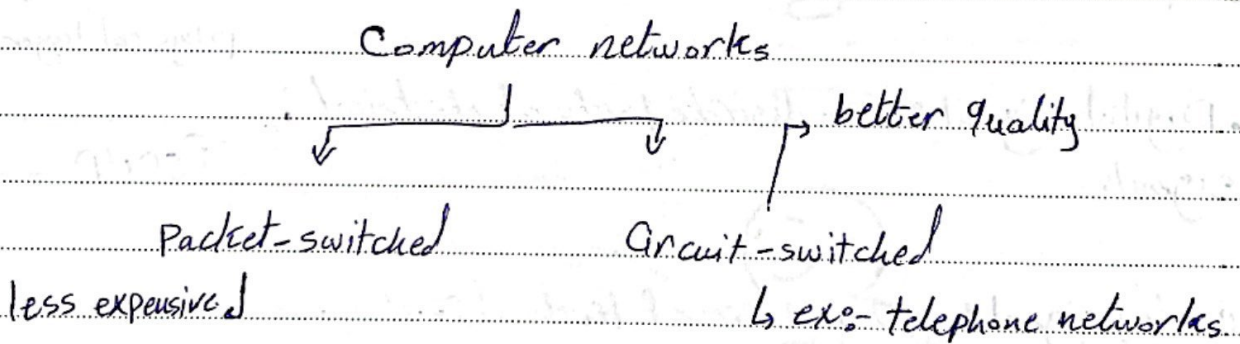 Computer networks
better quality
Packet-switched Circuit-switched
less expensive ex:- telephone networks